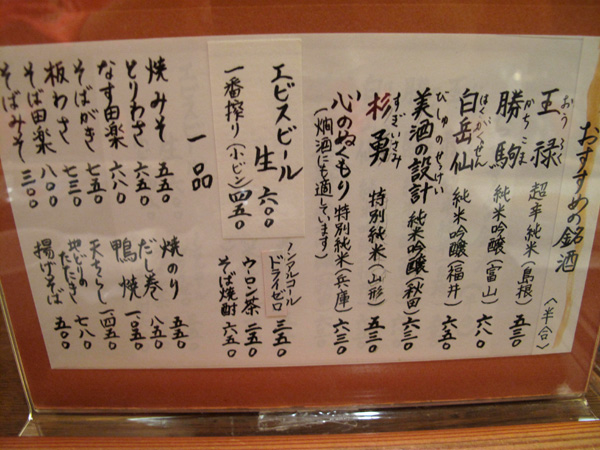 おすすめの銘酒 〈半合〉
王禄 おうろく 超辛純米(島根) 五三〇
勝駒 かちこま 純米吟醸(富山) 六八〇
白岳仙 はくがくせん 純米吟醸(福井) 六五〇
美酒の設計 びしゅのせっけい 純米吟醸(秋田) 六三〇
杉勇 すぎいさみ 特別純米(山形) 五三〇
心のぬくもり 特別純米(兵庫) 六三〇
(燗酒にも適しています)
エビスビール 生 六〇〇
一番搾り(小ビン) 四五〇
ノンアルコール ドライゼロ 三五〇
ウーロン茶 二五〇
そば焼酎 六五〇
一品
焼みそ 五五〇
とりわさ 六五〇
なす田楽 六八〇
そばがき 七五〇
板わさ 七三〇
そば田楽 八〇〇
そばみそ 三〇〇
焼のり 五五〇
だし巻 八五〇
鴨焼 一〇五〇
天ちらし 一四五〇
地どりのたたき 七八〇
揚げそば 五〇〇